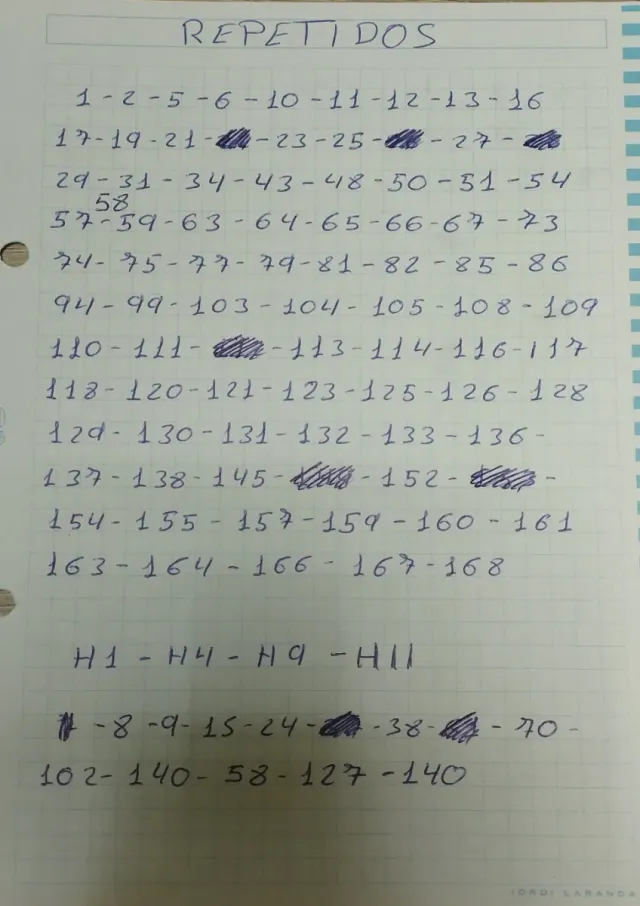 REPETIDOS
1 - 2 - 5 - 6 - 10 - 11 - 12 - 13 - 16
17 - 19 - 21 - - 23 - 25 - - 27 -
29 - 31 - 34 - 43 - 48 - 50 - 51 - 54
58
57 - 59 - 63 - 64 - 65 - 66 - 67 - 73
74 - 75 - 77 - 79 - 81 - 82 - 85 - 86
94 - 99 - 103 - 104 - 105 - 108 - 109
110 - 111 - - 113 - 114 - 116 - 117
118 - 120 - 121 - 123 - 125 - 126 - 128
129 - 130 - 131 - 132 - 133 - 136 -
137 - 138 - 145 - - 152 - -
154 - 155 - 157 - 159 - 160 - 161
163 - 164 - 166 - 167 - 168
H1 - H4 - H9 - H11
- 8 - 9 - 15 - 24 - - 38 - - 70 -
102 - 140 - 58 - 127 - 140
JORDI LABANDA